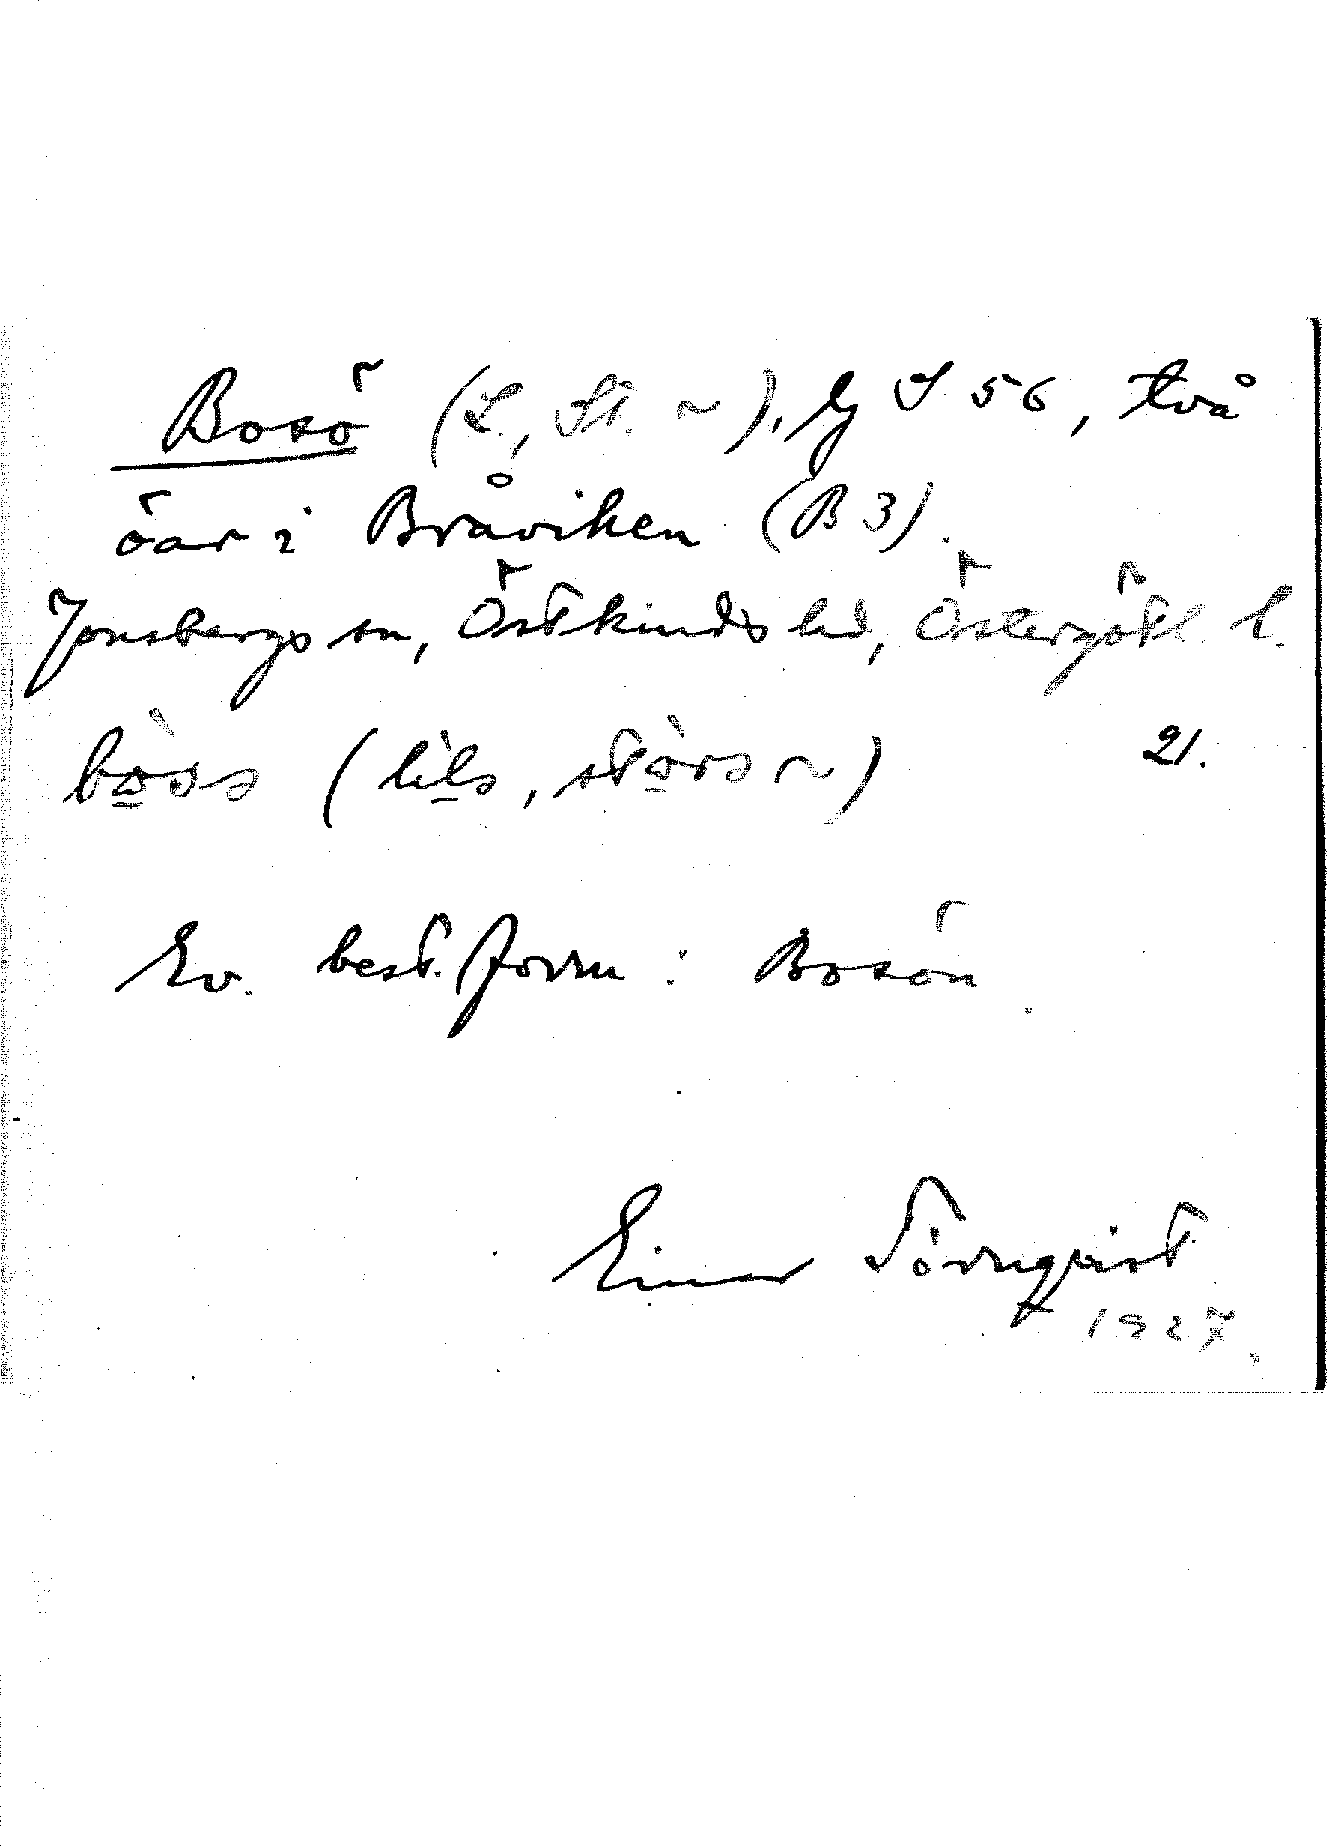 Bosö (L., St. ~), Gj S 56, två
öar i Bråviken (B 3).
Jonsbergs sn, Östkinds hd, Östergötl l.
21.
Ev. best. form: Bosön
Einar Törnqvist
1927.